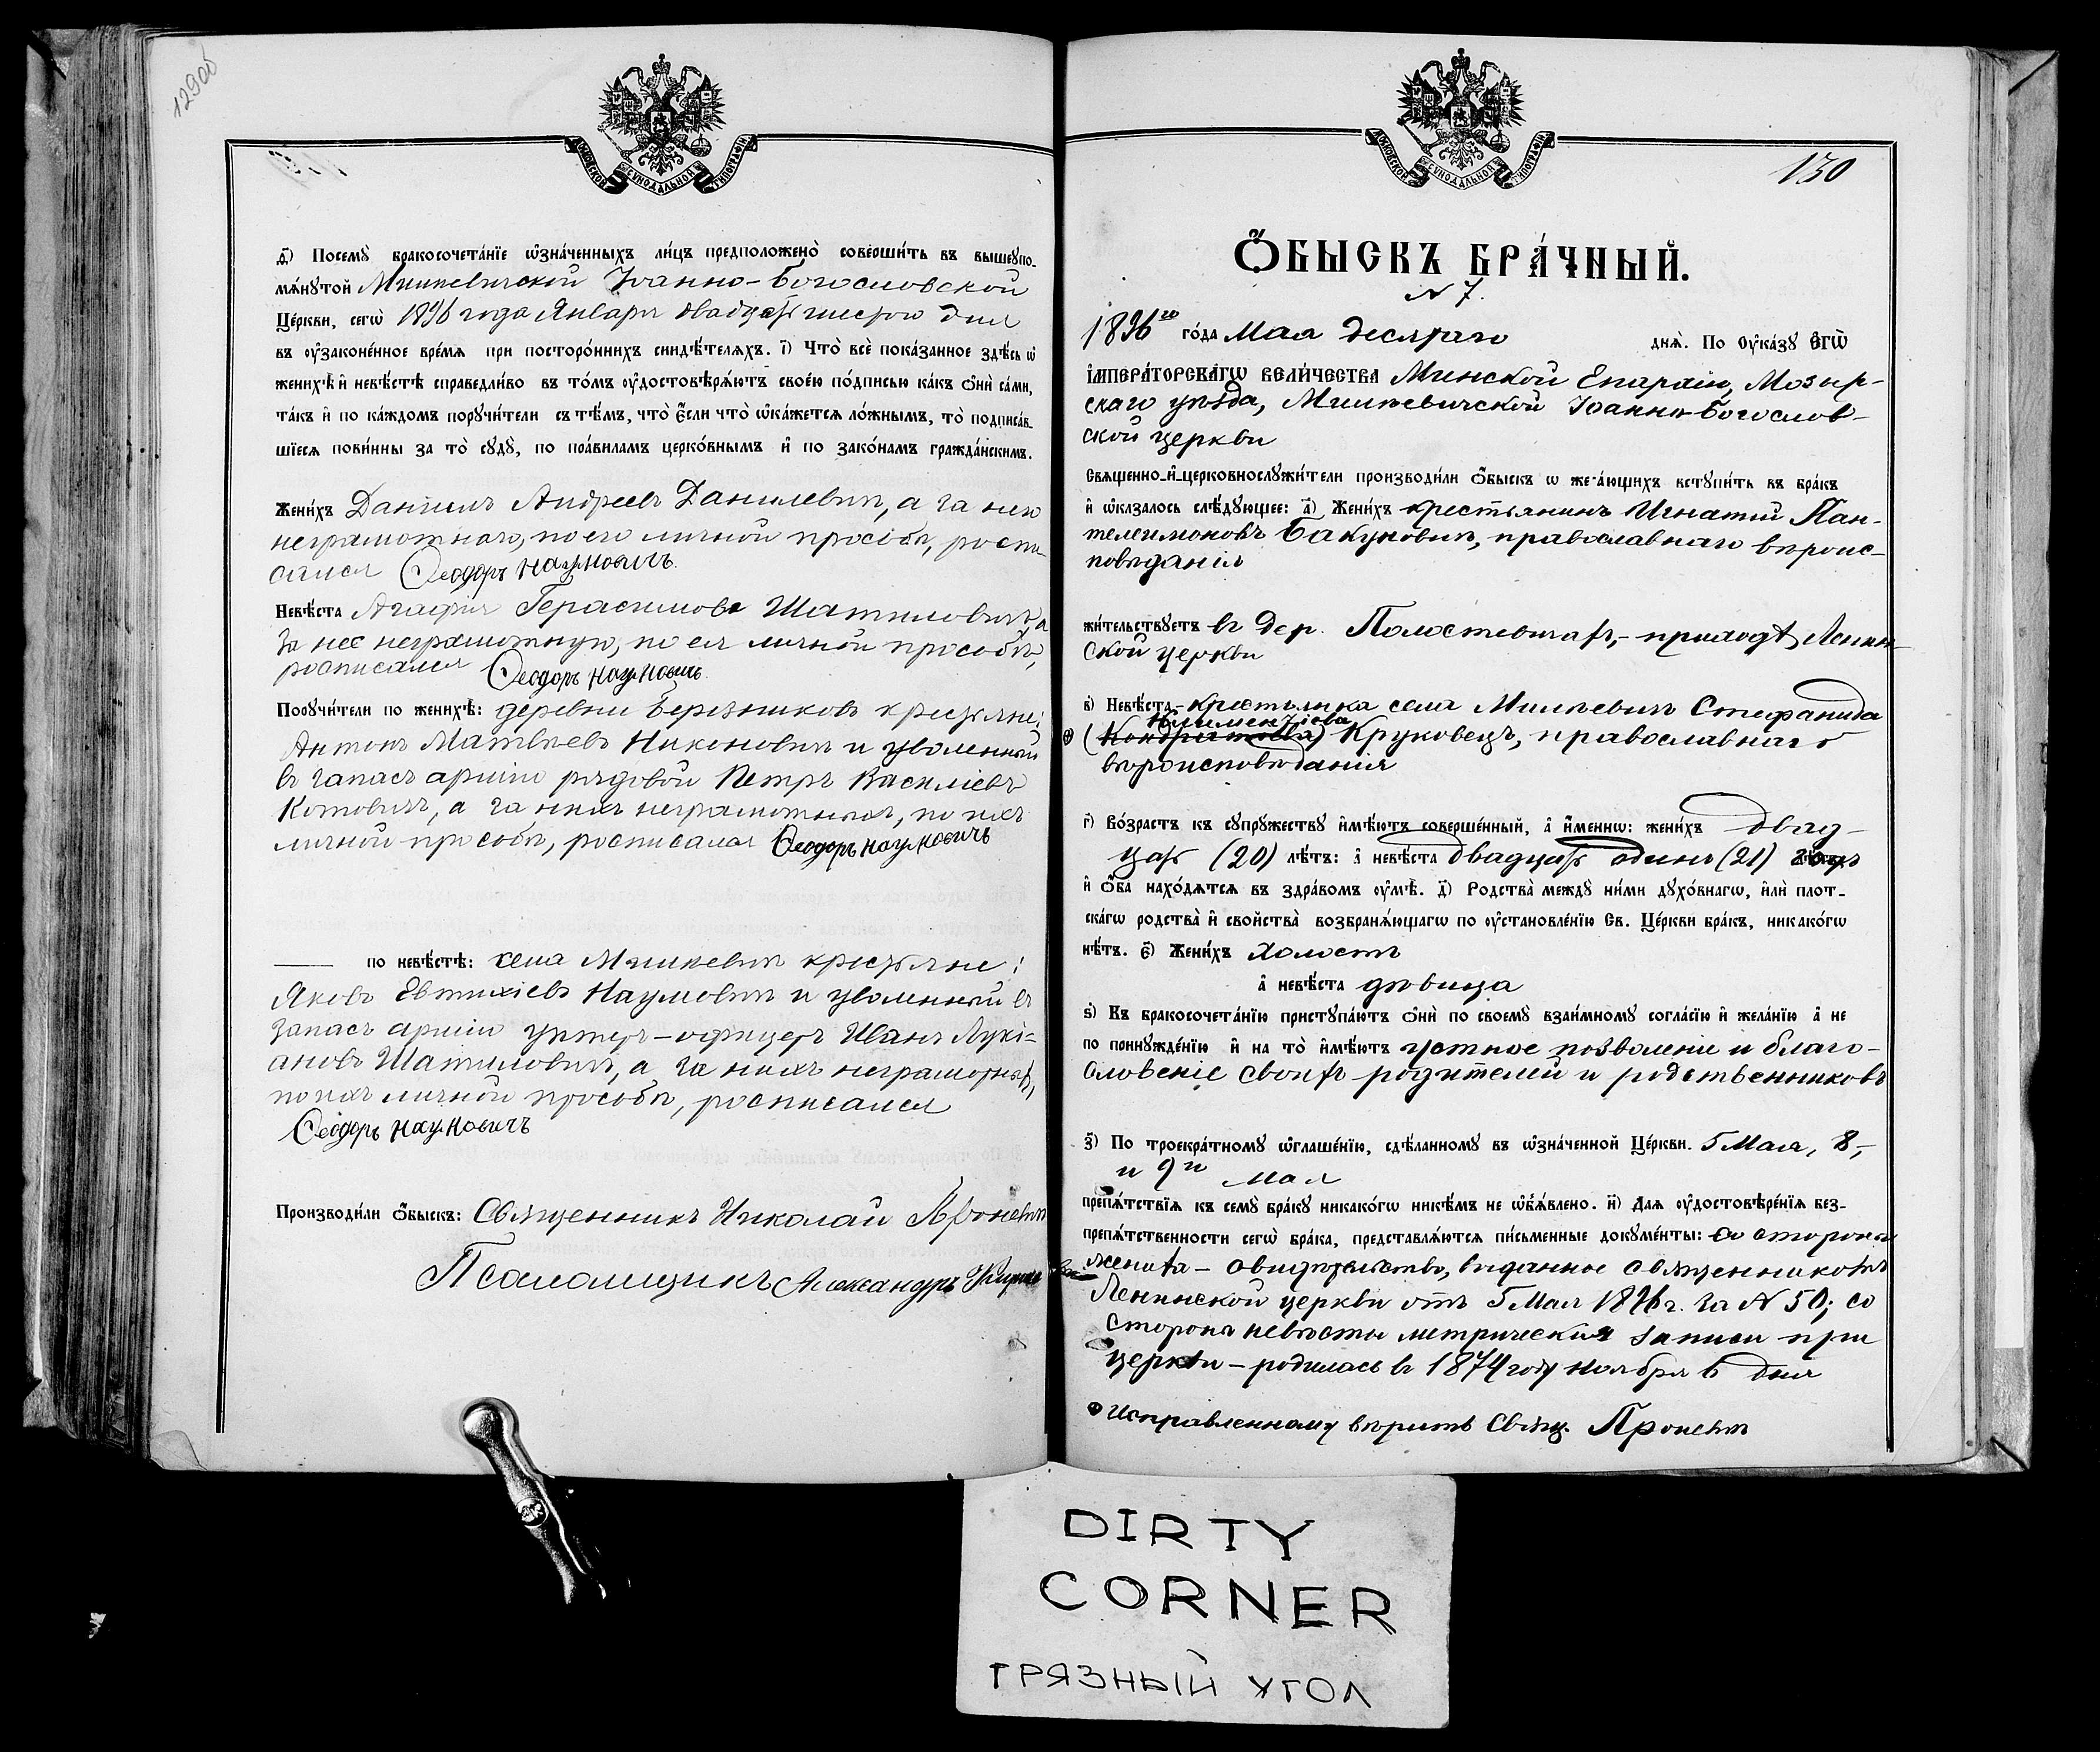 129об
МОСКОВСКОЙ СѴНОДАЛЬНОЙ ТѴПОГРАФІИ
д҃) Посемꙋ̀ бракосочета́нїе ѡ҆зна́ченныхъ ли́цъ предположено̀ соверши́ть въ вышеꙋпо-
мѧ́нꙋтой Милкевичской Іоанно-Богословской
Це́ркви, сегѡ̀ 1896 года Января двадцать шестого дня
въ ᲂу҆зако́не́нное вре́мѧ при посторо́ннихъ свидѣ́телѧхъ. і҃) Что̀ всѐ пока́занное здѣ́сь ѡ҆
женихѣ̀ и҆ невѣ́стѣ справедли́во въ то́мъ ᲂу҆достовѣрѧ́ютъ свое́ю по́дписью ка́къ ѻ҆нѝ са́ми,
та́къ и҆ по ка́ждомъ порꙋчи́тели съ тѣ́мъ, что̀ є҆́сли что̀ ѡ҆ка́жетсѧ ло́жнымъ, то̀ подписа́в-
шїесѧ пови́нны за то̀ сꙋдꙋ̀, по пра́виламъ церко́внымъ и҆ по зако́намъ гражда́нскимъ.
Жени́хъ Даніилъ Андреевъ Данилевич, а за него
неграмотнаго, по его личной просьбѣ, роспи
сался Ѳеодоръ Наумовичъ.
Невѣ́ста Агафія Герасимова Шатиловичъ, а
за нее неграмотную, по ея личной просьбѣ,
росписался Ѳеодоръ Наумовичъ.
Порꙋчи́тели по женихѣ̀: деревни Березниковъ крестьяне:
Антонъ Матвѣевъ Никоновичъ и уволенный
въ запасъ арміи рядовой Петръ Василіевъ
Котовичъ, а за нихъ неграмотныхъ, по ихъ
личной просьбѣ, росписался Ѳеодоръ Наумовичъ
по невѣ́стѣ: села Милкевичъ крестьяне:
Яковъ Евтихіевъ Наумовичъ и уволенный въ
запасъ арміи унтеръ-офицеръ Иванъ Лукі-
ановъ Шатиловичъ, а за нихъ неграмотныхъ,
по ихъ личной просьбѣ, росписался
Ѳеодоръ Наумовичъ
Производи́ли ѻ҆́быскъ: Священникъ Николай
Псаломщикъ Александръ
МОСКОВСКОЙ СѴНОДАЛЬНОЙ ТѴПОГРАФІИ
130
Ѻ҆́БЫСКЪ БРА́ЧНЫЙ.
N 7.
1896го го́да Мая десятаго днѧ̀. По ᲂу҆ка́зꙋ Є҆гѡ̀
І҆МПЕРА́ТОРСКАГѠ ВЕЛИ́ЧЕСТВА Минской Епархіи, Мозыр-
скаго уѣзда, Милкевичской Іоанно-Богослов-
ской церкви
Свѧщенно-и҆-церковнослꙋжи́тели производи́ли ѻ҆́быскъ ѡ҆ жела́ющихъ встꙋпи́ть въ бра́къ
и҆ ѡ҆каза́лось слѣ́дꙋющее: а҃) Жени́хъ крестьянинъ Игнатій Пан-
телеимоновъ Бакуновичъ, православнаго вѣроис-
повѣданія
жи́тельствꙋетъ въ дер. Поностевичахъ, - приходѣ Ленин-
ской церкви
в҃) Невѣ́ста - крестьянка села Милкевичъ Стефанида
Климентіева
⊕ (Кондратова) Круковецъ, православнаго
вѣроисповѣданія
г҃) Во́зрастъ къ сꙋпрꙋ́жествꙋ и҆мѣ́ютъ соверше́нный, а҆ и҆́менно: жени́хъ двад-
цать (20) лѣ́тъ: а҆ невѣ́ста двадцать одинъ (21) годъ
и҆ ѻ҆́ба нахо́дѧтсѧ въ здра́вомъ ᲂу҆мѣ̀. д҃) Родства̀ междꙋ̀ ни́ми дꙋхо́внагѡ, и҆лѝ плот-
ска́гѡ родства̀ и҆ свойства̀ возбранѧ́ющагѡ по ᲂу҆становле́нїю Св. Це́ркви бра́къ, никако́гѡ
нѣ́тъ. є҃) Жени́хъ холостъ
а҆ невѣ́ста дѣвица
ѕ҃) Къ бракосочета́нїю пристꙋпа́ютъ ѻ҆нѝ по своемꙋ̀ взаи́мномꙋ согла́сїю и҆ жела́нїю а҆ не
по принꙋжде́нїю и҆ на то̀ и҆мѣ́ютъ устное позволеніе и благо-
словеніе своихъ родителей и родственниковъ
з҃) По троекра́тномꙋ ѡ҆глаше́нїю, сдѣ́ланномꙋ въ ѡ҆зна́ченной Це́ркви. 5 Мая, 8,-
и 9го мая
препѧ́тствїѧ къ семꙋ̀ бра́кꙋ никако́гѡ никѣ́мъ не ѡ҆б̾ѧ́влено. и҃) Длѧ ᲂу҆достовѣре́нїѧ без-
препѧ́тственности сегѡ̀ бра́ка, представлѧ́ютсѧ пи́сьменные докꙋме́нты: со стороны
жениха - свидѣтельство, выданное священникомъ
Ленинской церкви отъ 5 Мая 1896 г. за N 50; со
стороны невѣсты метрическія записи при
церкви - родилась въ 1874 году ноября 6 дня
⊕ Исправленному вѣрить Свящ.
DIRTY
CORNER
ГРЯЗНЫЙ УГОЛ